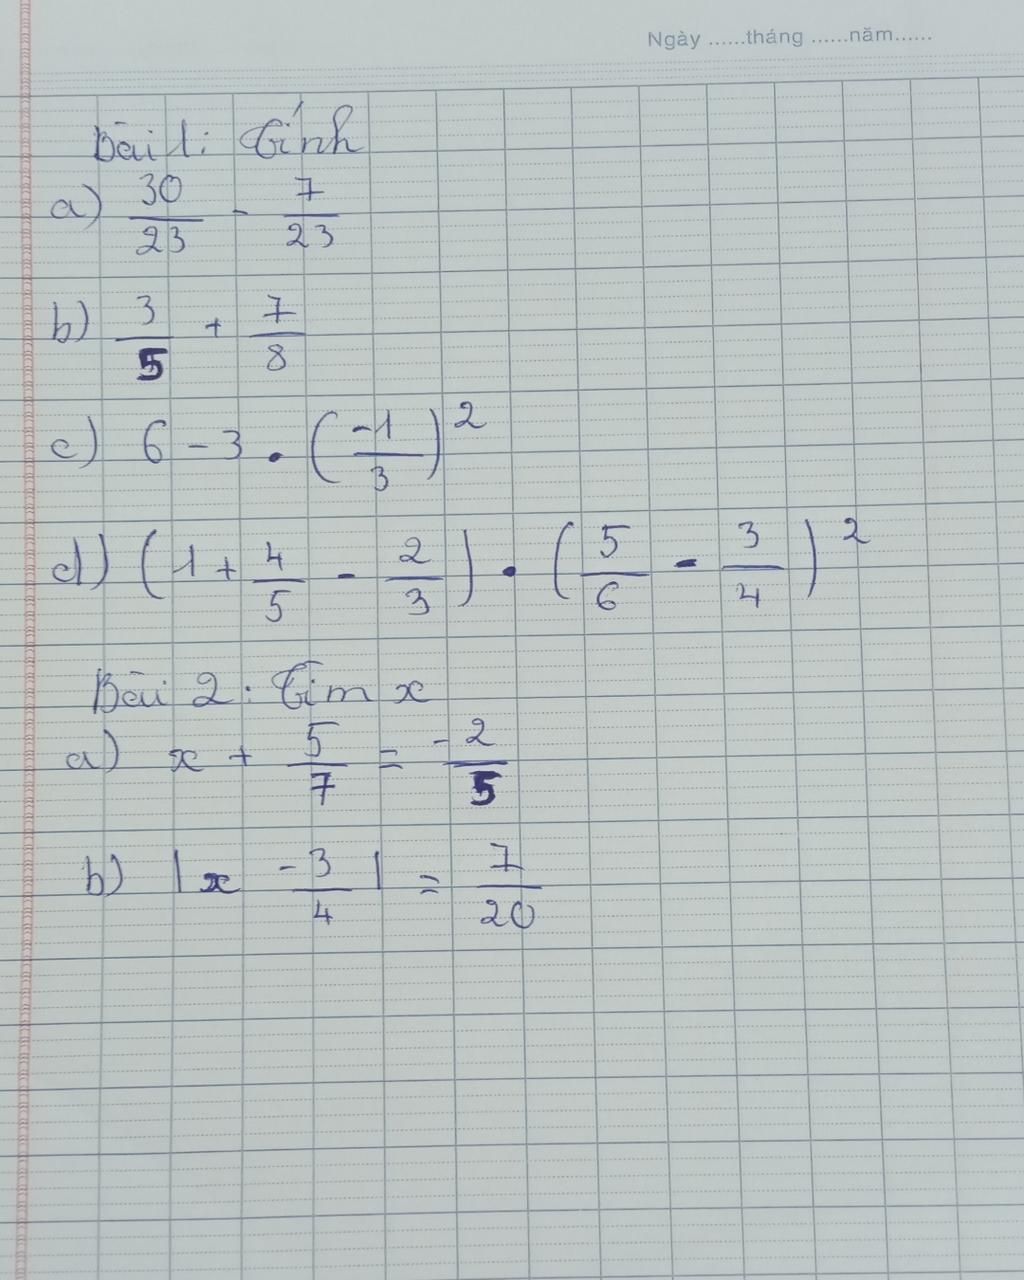 Ngày ......tháng ......năm......
Bài 1: Tính
a) 30/23 - 7/23
b) 3/5 + 7/8
c) 6 - 3 . (-1/3)^2
d) (1 + 4/5 - 2/3) . (5/6 - 3/4)^2
Bài 2: Tìm x
a) x + 5/7 = -2/5
b) |x - 3/4| = 7/20